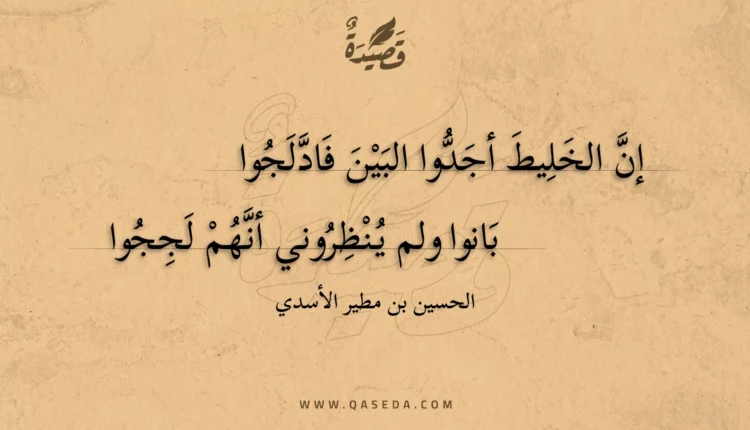 قَصِيْدَةٌ
إنَّ الخَلِيطَ أجَدُّوا البَيْنَ فَادَّلَجُوا
بَانوا ولم يُنْظِرُوني أنَّهُمْ لَجِجُوا
الحسين بن مطير الأسدي
WWW.QASEDA.COM